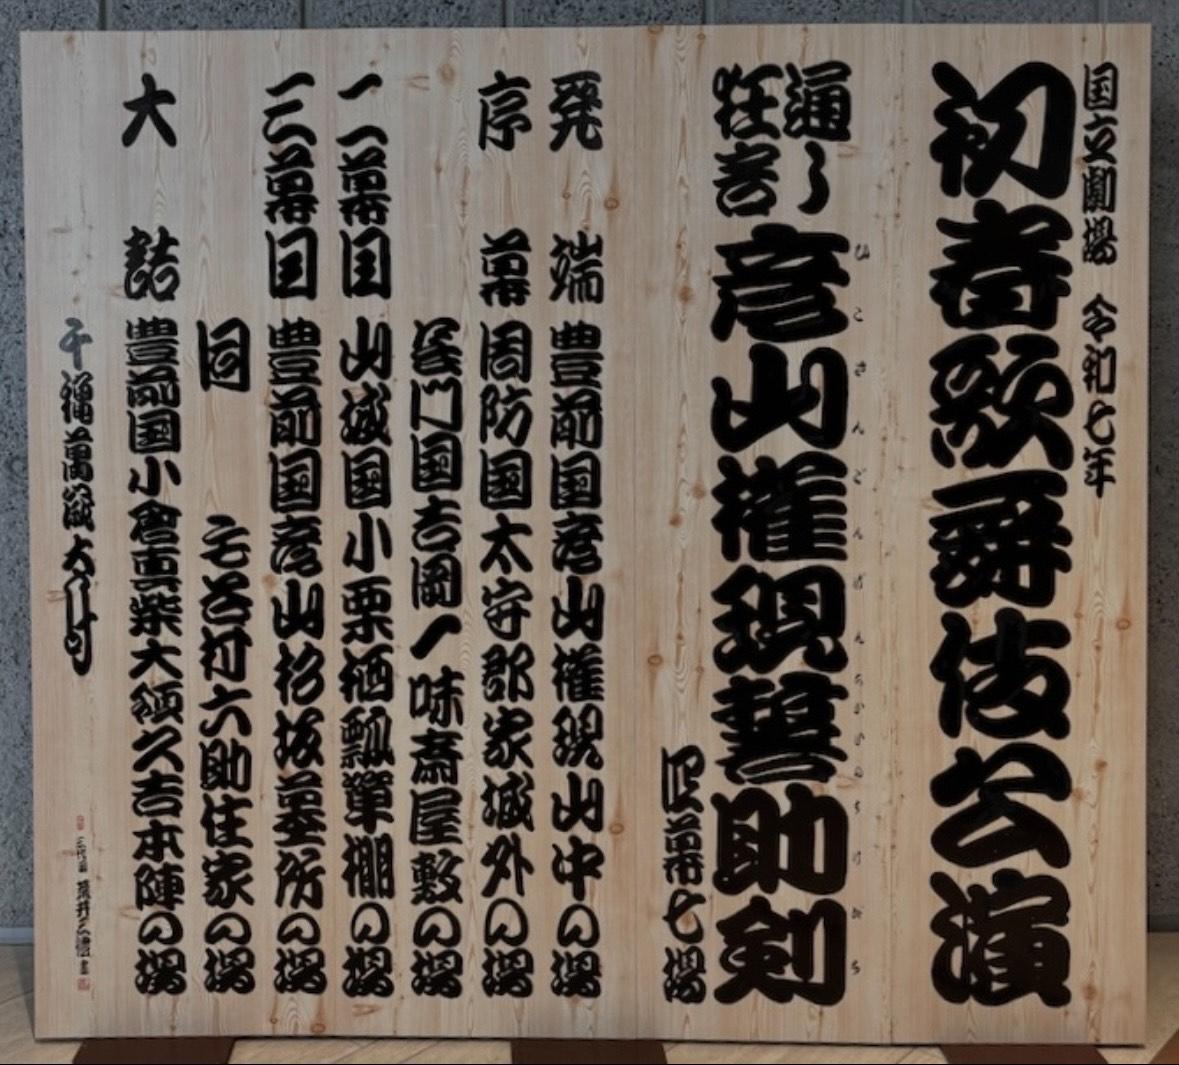 国立劇場 令和七年
初春歌舞伎公演
通し狂言
彦山権現誓助剣
ひこさんごんげんちかいのすけだち
四幕七場
発端 豊前国彦山権現山中の場
序幕 周防国太守郡家城外の場
長門国吉岡一味斎屋敷の場
二幕目 山城国小栗栖瓢箪棚の場
三幕目 豊前国彦山杉坂墓所の場
同 毛谷村六助住家の場
大詰 豊前国小倉真柴大領久吉本陣の場
千穐萬歳 大入叶
三代目 荒井三禮書